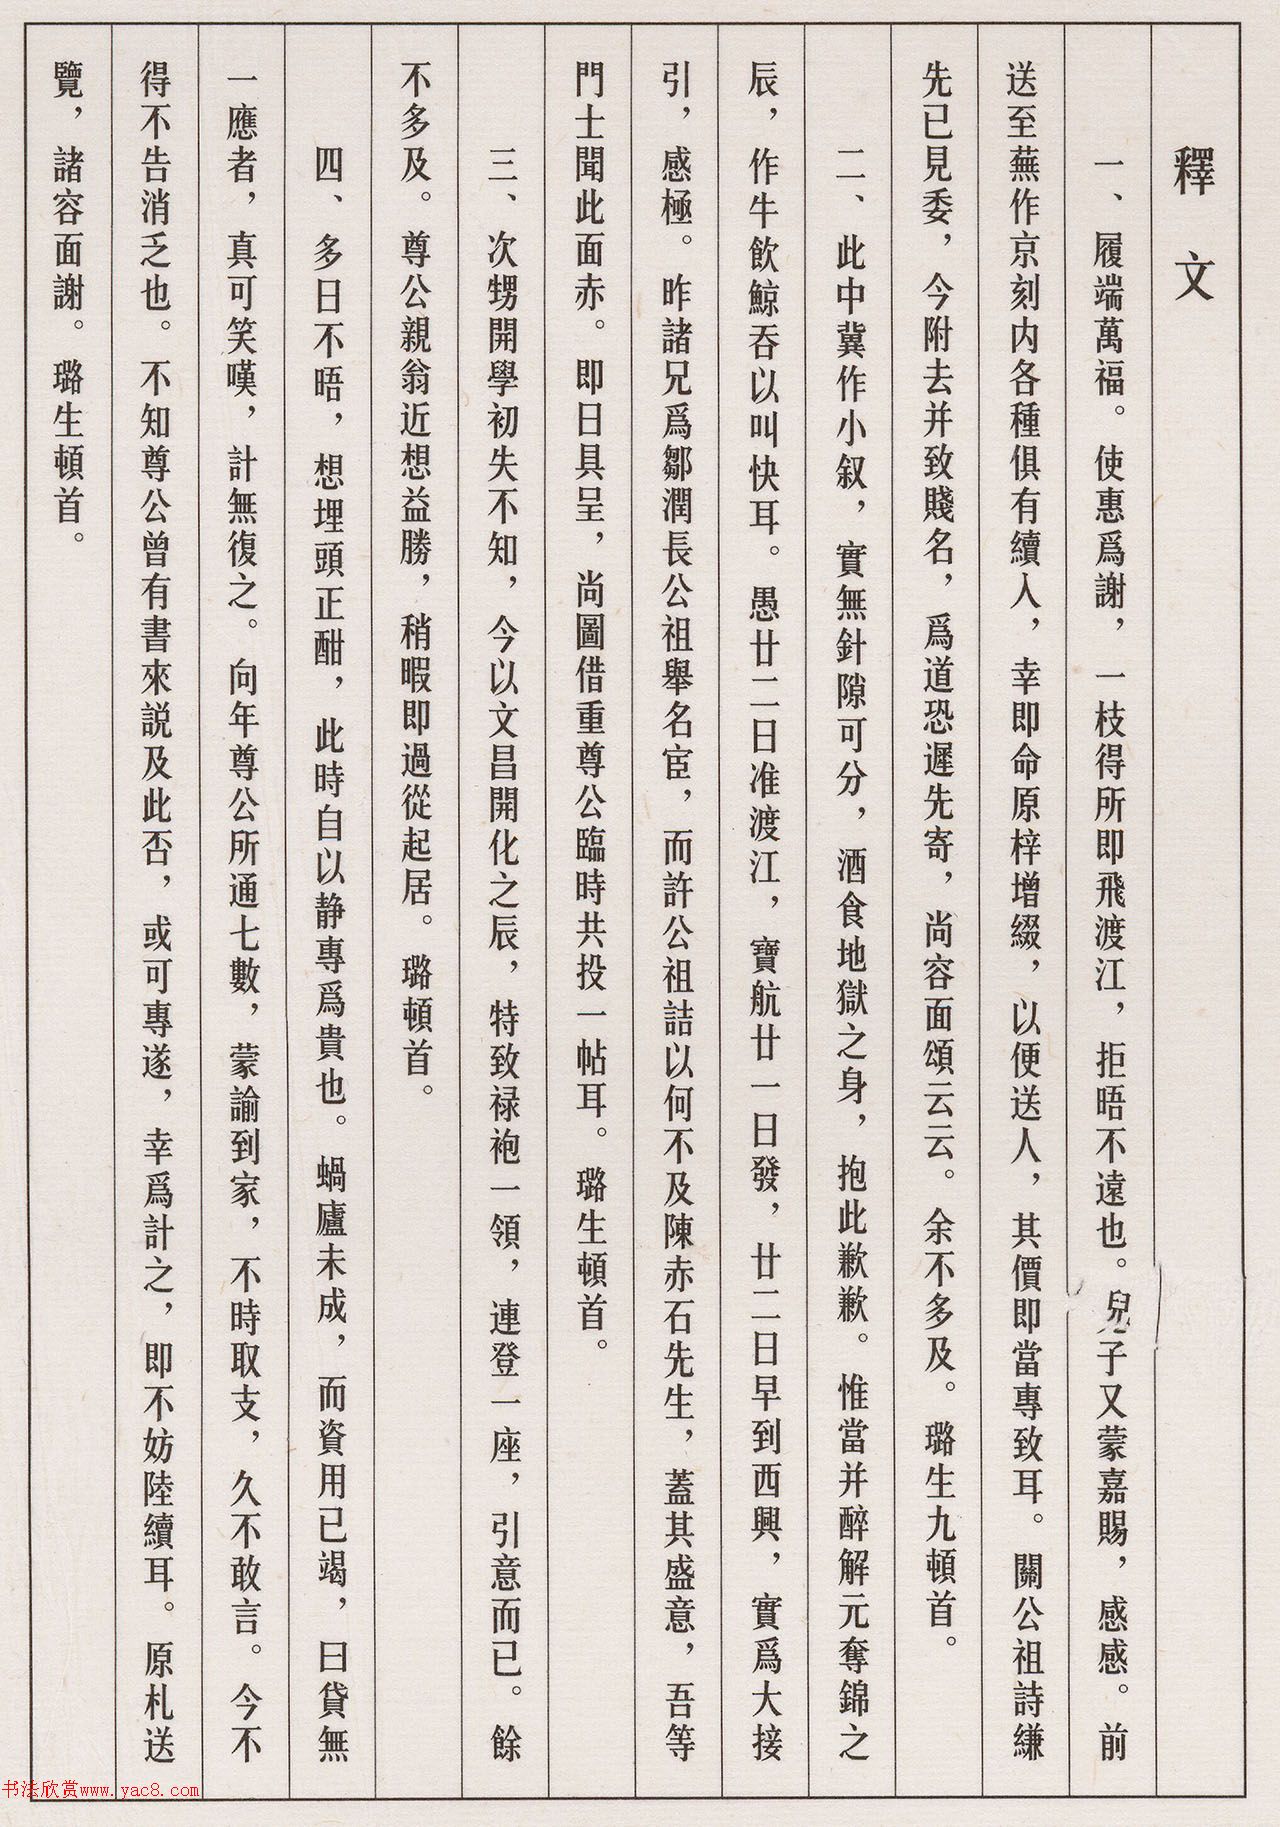 釋文
一、履端萬福。使惠爲謝，一枝得所即飛渡江，拒晤不遠也。兒子又蒙嘉賜，感感。前
送至蕪作京刻内各種俱有續入，幸即命原梓增綴，以便送人，其價即當專致耳。關公祖詩縑
先已見委，今附去并致賤名，爲道恐遲先寄，尚容面頌云云。余不多及。璐生九頓首。
二、此中冀作小叙，實無針隙可分，酒食地獄之身，抱此歉歉。惟當并醉解元奪錦之
辰，作牛飲鯨吞以叫快耳。愚廿二日准渡江，寶航廿一日發，廿二日早到西興，實爲大接
引，感極。昨諸兄爲鄒潤長公祖舉名宦，而許公祖詰以何不及陳赤石先生，蓋其盛意，吾等
門士聞此面赤。即日具呈，尚圖借重尊公臨時共投一帖耳。璐生頓首。
三、次甥開學初失不知，今以文昌開化之辰，特致禄袍一領，連登一座，引意而已。餘
不多及。尊公親翁近想益勝，稍暇即過從起居。璐頓首。
四、多日不晤，想埋頭正酣，此時自以静專爲貴也。蝸廬未成，而資用已竭，曰貸無
一應者，真可笑嘆，計無復之。向年尊公所通七數，蒙諭到家，不時取支，久不敢言。今不
得不告消乏也。不知尊公曾有書來説及此否，或可專遂，幸爲計之，即不妨陸續耳。原札送
覽，諸容面謝。璐生頓首。
书法欣赏www.yac8.com